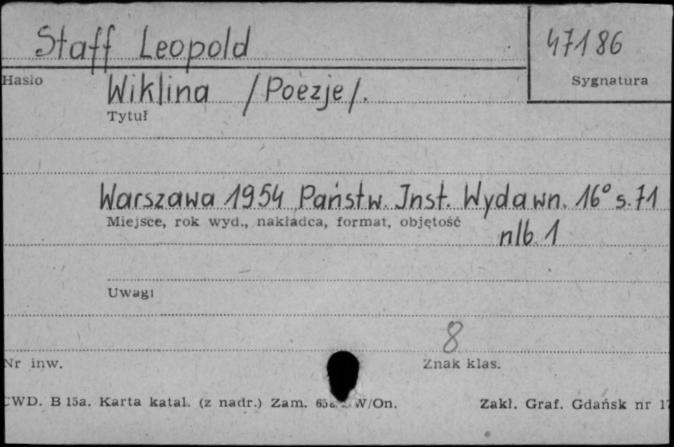 Staff Leopold 47186
Hasło Sygnatura
Wiklina /Poezje/.
Tytuł
Warszawa 1954 Państw. Inst. Wydawn. 16° s. 71
Miejsce, rok wyd., nakładca, format, objętość
nlb. 1
Uwagi
8
Nr inw. Znak klas.
CWD. B 15a. Karta katal. (z nadr.) Zam. W/On. Zakł. Graf. Gdańsk nr